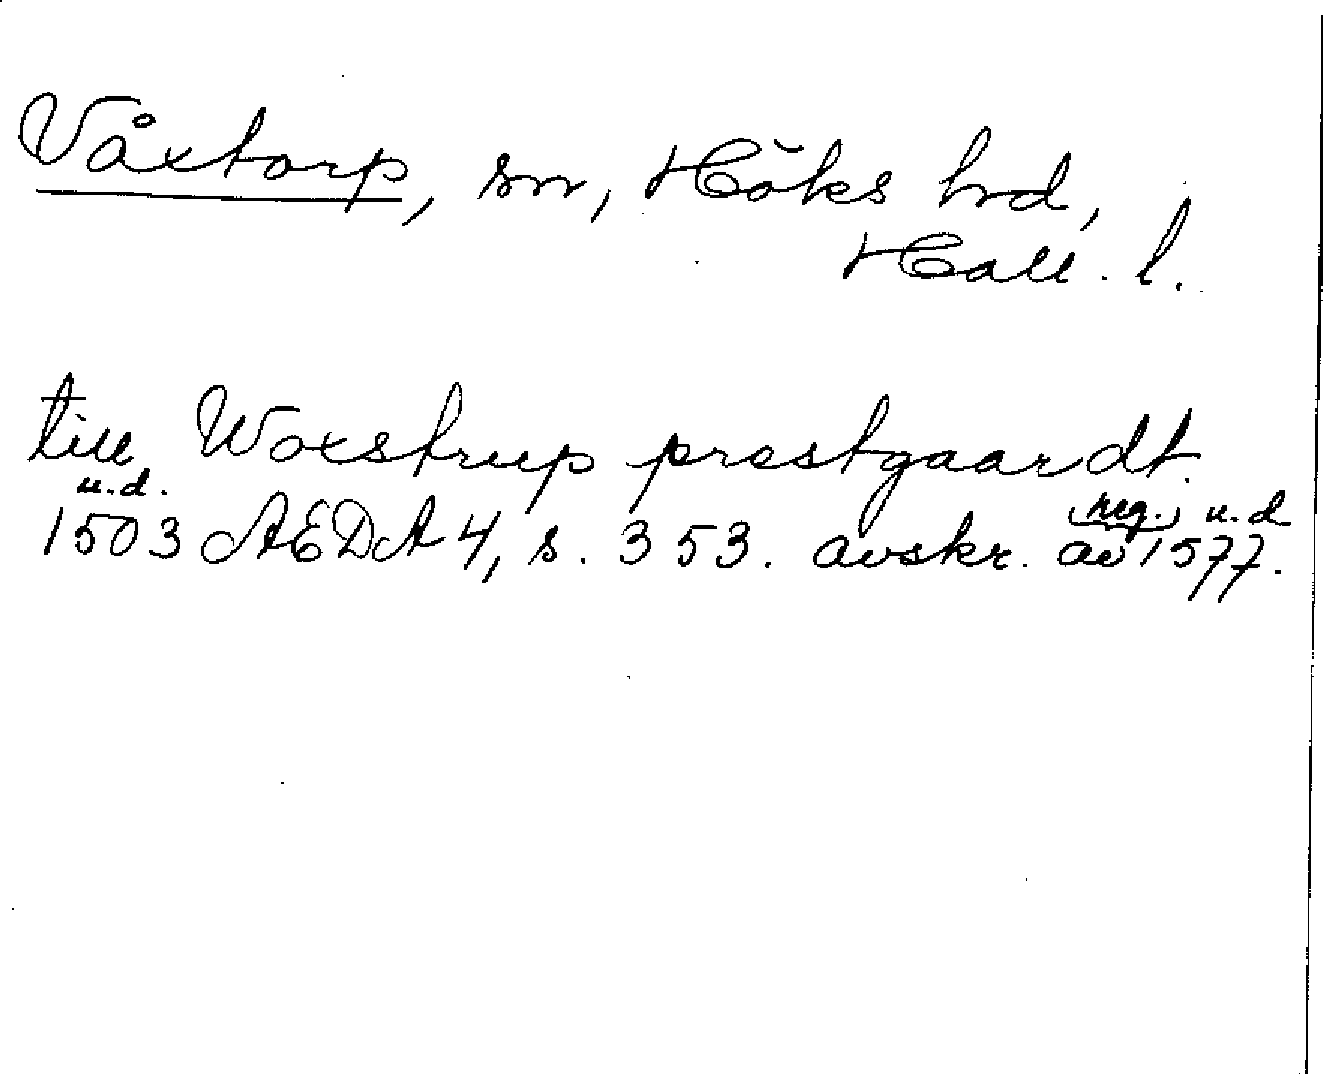 Våxtorp, sn, Höks hrd,
Hall. l.
till Woxstrup prestgaardt.
u.d. (reg.) u.d
1503 AEDA 4, s. 353. avskr. av 1577.